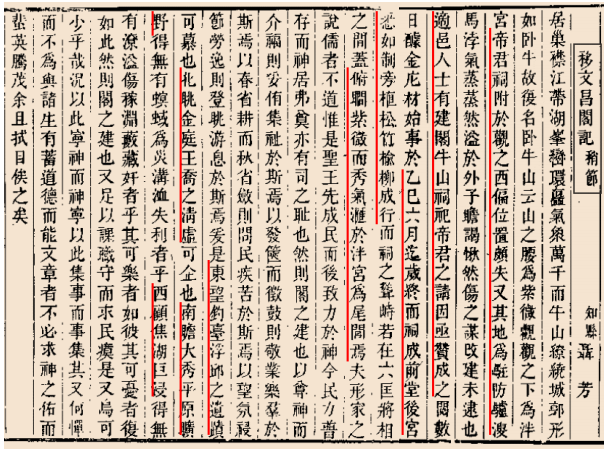 移文昌閣記 稍節
知縣聶芳
居巢襟江帶湖峯巒環矗氣象萬千而牛山繚繞城郭形
如卧牛故後名卧牛山云山之腰為紫微觀觀之下為泮
宮帝君祠附於觀之西偏位置頗失又其地為駐防驢溲
馬浡氣蒸蒸然溢於外予瞻謁愀然傷之謀改建未逮也
適邑人士有建閣牛山祠祀帝君之請因亟贊成之閱數
日醵金庀材始事於乙巳六月迄歲終而祠成前堂後宮
悉如制旁植松竹榆柳成行而祠之聳峙若在六匡將相
之間蓋俯矙紫微而秀氣滙於泮宮為尾閭焉夫形家之
說儒者不道惟是聖王先成民而後致力於神今民力普
存而神居弗奠亦有司之恥也然則閣之建也以尊神而
介福則妥侑集祉於斯焉以發篋而徵鼓則敬業樂羣於
斯焉以春省耕而秋省斂則問民疾苦於斯焉以望氛祲
節勞逸則登眺游息於斯焉爰是東望釣臺浮邱之遺蹟
可慕也北眺金庭王喬之清虛可企也南瞻大秀平原曠
野得無有螟蜮為災溝洫失利者乎西顧焦湖巨浸得無
有潦溢傷稼淵藪藏奸者乎其可樂者如彼其可憂者復
如此然則閣之建也又足以課職守而求民瘼是又烏可
少乎哉況以此寧神而神寧以此集事而事集其又何憚
而不為與諸生有蓄道德而能文章者不必求神之佑而
蜚英騰茂余且拭目俟之矣